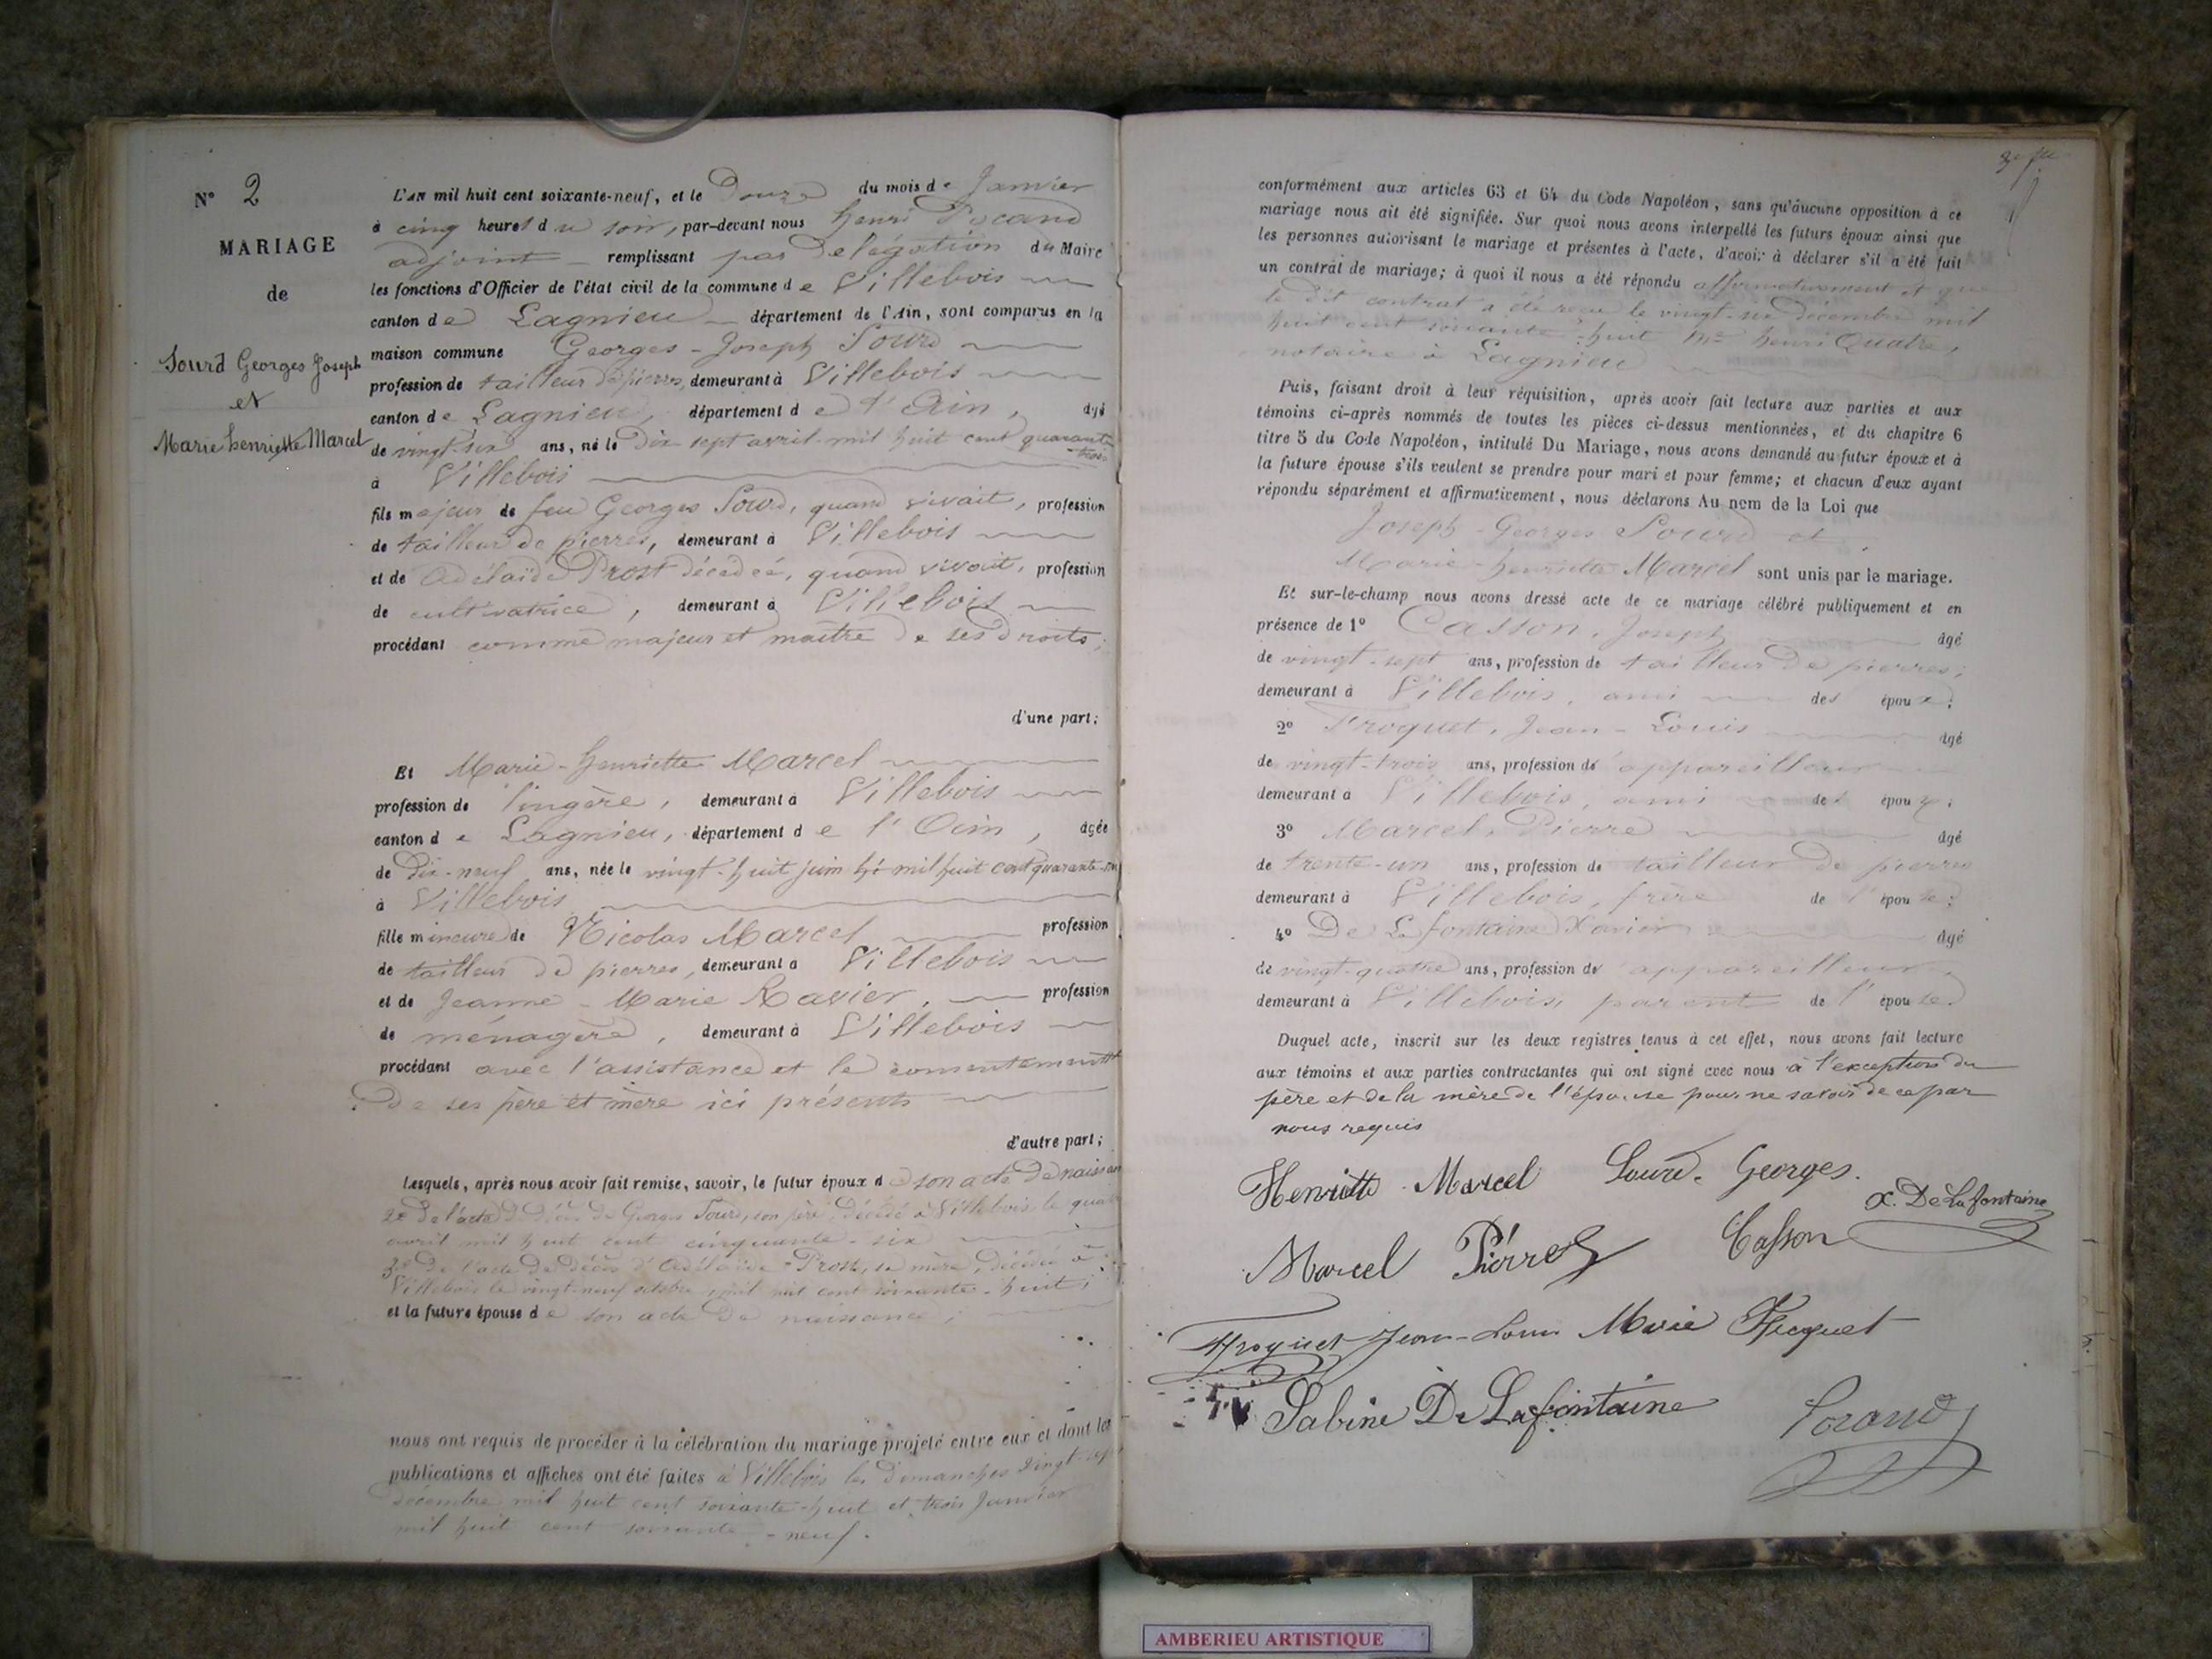 N° 2
MARIAGE
de
Sourd Georges Joseph
et
Marie henriette Marcel
L'AN mil huit cent soixante-neuf, et le Douze du mois de Janvier
à cinq heures du soir, par-devant nous henri
adjoint remplissant par Délégation du Maire
les fonctions d'Officier de l'état civil de la commune de Villebois
canton de Lagnieu département de l'Ain, sont comparus en la
maison commune Georges-Joseph Sourd
profession de tailleur de pierres, demeurant à Villebois
canton de Lagnieu, département de l'Ain, âgé
de vingt-six ans, né le Dix sept avril mil huit cent quarante
trois
à Villebois
fils majeur de feu Georges Sourd, quand vivait, profession
de tailleur de pierres, demeurant à Villebois
et de Adélaïde Prost décedeé, quand vivait, profession
de cultivatrice, demeurant à Villebois
procédant comme majeur et maître de ses droits;
d'une part;
Et Marie-henriette Marcel
profession de lingère, demeurant à Villebois
canton de Lagnieu, département de l'Ain, âgée
de Dix-neuf ans, née le vingt-huit juin mil huit cent quarante
à Villebois
fille mineure de Nicolas Marcel profession
de tailleur de pierres, demeurant à Villebois
et de Jeanne-Marie Ravier, profession
de ménagère, demeurant à Villebois
procédant avec l'assistance et le consentement
De ses père et mère ici présents
d'autre part;
Lesquels, après nous avoir fait remise, savoir, le futur époux de son acte de naissan
2° de l'acte de décès de Georges Sourd, son père, décédé à Villebois, le quat
avril mil huit cent cinquante-six
3° de l'acte de décès d'Adélaïde Prost, sa mère, décédée à
Villebois le vingt-neuf octobre mil huit cent soixante-huit;
et la future épouse de son acte de naissance;
nous ont requis de procéder à la célébration du mariage projeté entre eux et dont les
publications et affiches ont été faites à Villebois les Dimanches vingt-sept
décembre mil huit cent soixante-huit et trois Janvier
mil huit cent soixante-neuf.
conformément aux articles 63 et 64 du Code Napoléon, sans qu'aucune opposition à ce
mariage nous ait été signifiée. Sur quoi nous avons interpellé les futurs époux ainsi que
les personnes autorisant le mariage et présentes à l'acte, d'avoir à déclarer s'il a été fait
un contrat de mariage; à quoi il nous a été répondu affirmativement et que
le dit contrat a été reçu le vingt-six décembre mil
huit cent soixante-huit Me henri Quatre,
notaire à Lagnieu
Puis, faisant droit à leur réquisition, après avoir fait lecture aux parties et aux
témoins ci-après nommés de toutes les pièces ci-dessus mentionnées, et du chapitre 6
titre 5 du Code Napoléon, intitulé Du Mariage, nous avons demandé au futur époux et à
la future épouse s'ils veulent se prendre pour mari et pour femme; et chacun d'eux ayant
répondu séparément et affirmativement, nous déclarons Au nom de la Loi que
Joseph-Georges Sourd et
Marie-henriette Marcel sont unis par le mariage.
Et sur-le-champ nous avons dressé acte de ce mariage célébré publiquement et en
présence de 1° Casson, Joseph âgé
de vingt-sept ans, profession de tailleur de pierres;
demeurant à Villebois, ami des époux;
2° Froquet, Jean-Louis âgé
de vingt-trois ans, profession de appareilleur
demeurant à Villebois, ami des époux;
3° Marcel, Pierre âgé
de trente-un ans, profession de tailleur de pierres
demeurant à Villebois, frère de l'épouse;
4° De Lafontaine Xavier âgé
de vingt-quatre ans, profession de appareilleur,
demeurant à Villebois, parent de l'épouse
Duquel acte, inscrit sur les deux registres tenus à cet effet, nous avons fait lecture
aux témoins et aux parties contractantes qui ont signé avec nous à l'exception du
père et de la mère de l'épouse pour ne savoir de ce par
nous requis
Henriette Marcel Sourd Georges.
X. De Lafontaine
Marcel Pierre Casson
Froquet Jean-Louis Marie
Sabine De Lafontaine
AMBERIEU ARTISTIQUE